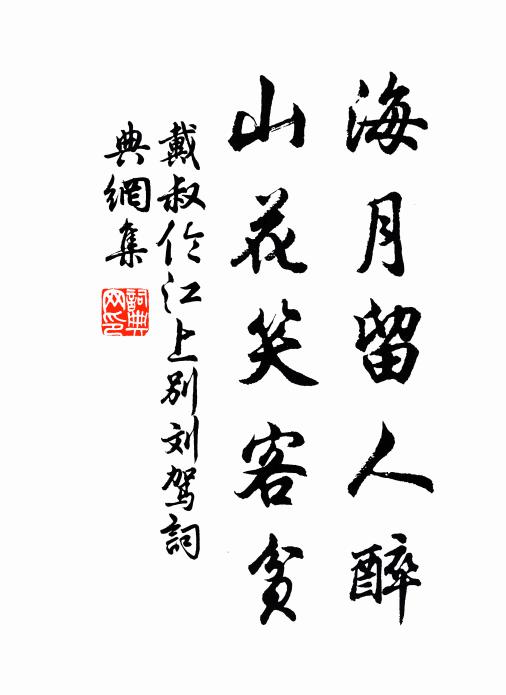 海月留人醉
山花笑客貧
戴叔伦江上别刘驾詞
典網集
詞典
网印